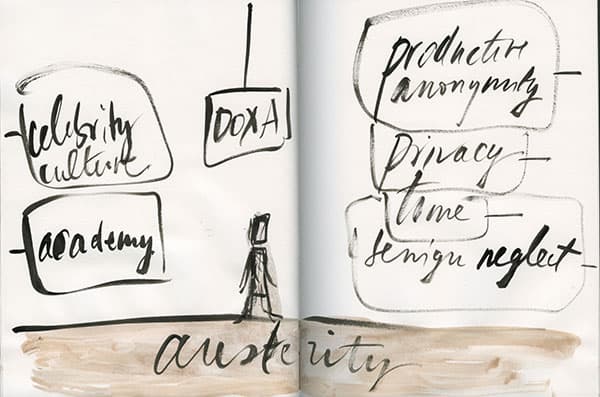 celebrity
culture
academy
DOXA
productive
anonymity
privacy
time
benign neglect
austerity